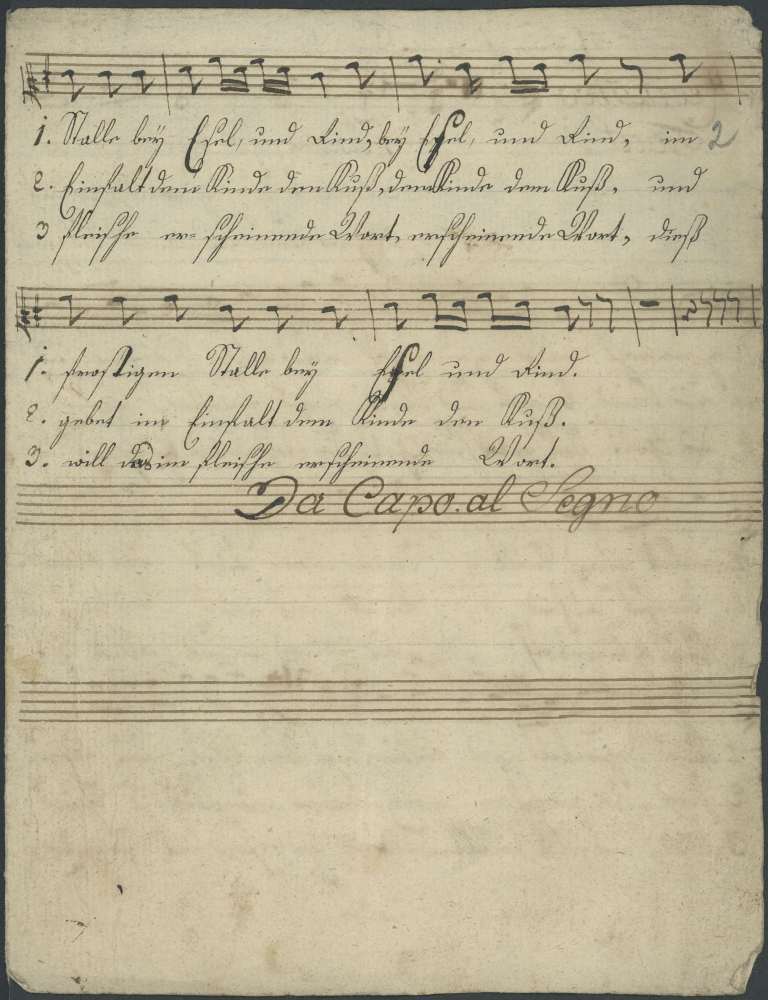 1. Stalle bey Esel, und Rind, bey Esel, und Rind, im 2
2. Einfalt dem Kinde den Kuß, dem Kinde den Kuß, und
3 fleische er- scheinende Wort, erscheinende Wort, dieß
1. frostigen Stalle bey Esel und Rind.
2. gebet in Einfalt dem Kinde den Kuß.
3. will das im fleische erscheinende Wort.
Da Capo. al Segno